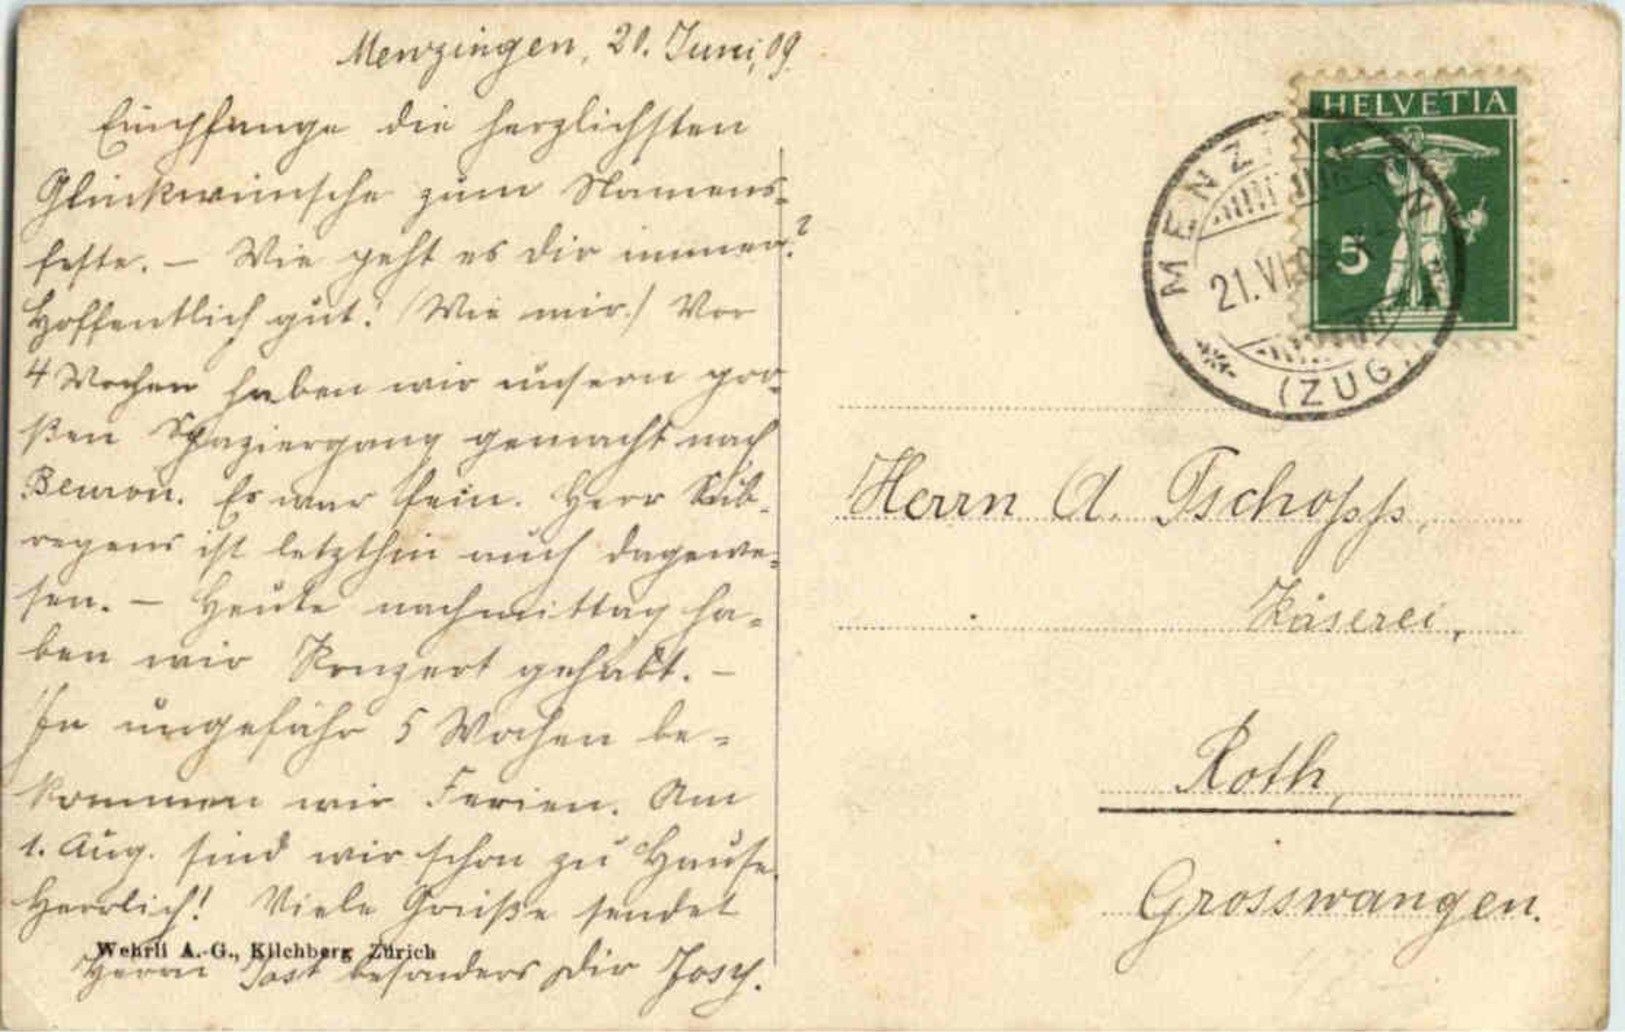 Menzingen, 20. Juni, 09.
Empfange die herzlichsten
Glückwünsche zum Namens-
feste. – Wie geht es dir immer?
Hoffentlich gut! (Wie mir.) Vor
4 Wochen haben wir unsern gro-
ßen Spaziergang gemacht nach
Beuron. Es war fein. Herr Sub-
regens ist letzthin auch dagewe-
sen. – Heute nachmittag ha-
ben wir Konzert gehabt. –
In ungefähr 5 Wochen be-
kommen wir Ferien. Am
1. Aug. sind wir schon zu Hause.
Herrlich! Viele Grüße sendet
Herrn Jost besonders Dir Josy.
Wehrli A.-G., Kilchberg Zürich
HELVETIA
5
MENZINGEN
21.VI.09
(ZUG)
Herrn A. Tschopp,
Käserei,
Roth,
Grosswangen.